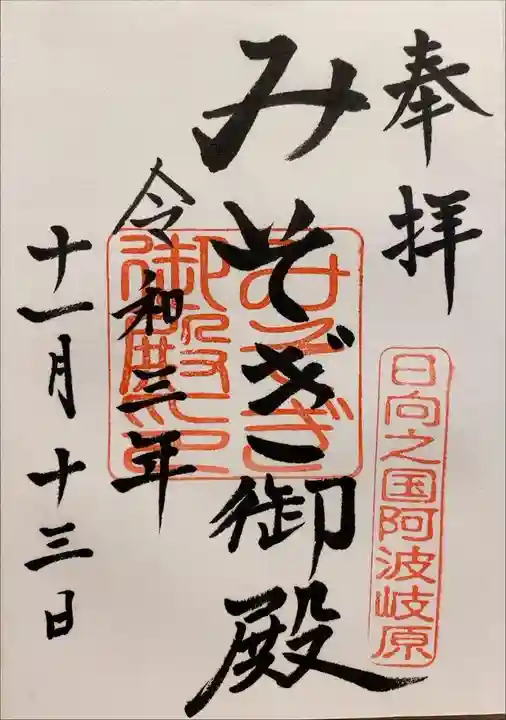 奉拝
日向之国阿波岐原
みそぎ御殿
みそぎ
御殿之印
令和三年
十一月十三日